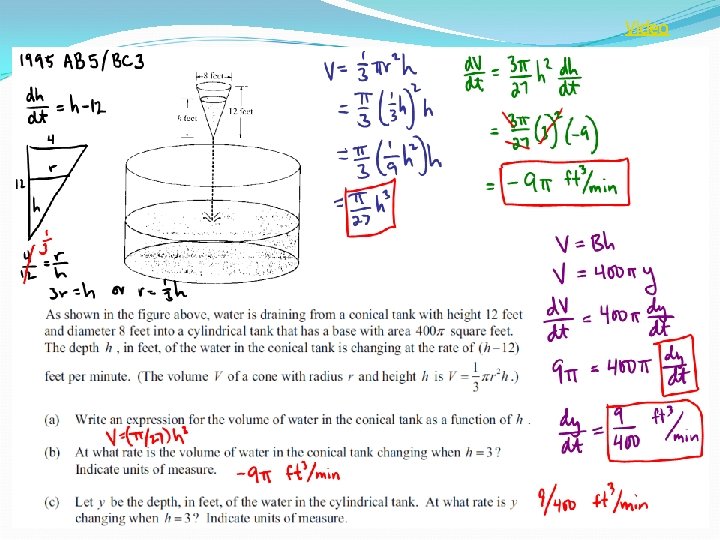 Video
1995 AB5/BC3
dh/dt = h-12
4
r
12
h
4/12 1/3 = r/h
3r = h or r = 1/3 h
8 feet
h feet
12 feet
V = 1/3 πr²h
= π/3 (1/3 h)² h
= π/3 (1/9 h²) h
= π/27 h³
dV/dt = 3π/27 h² dh/dt
= 3π/27 (3)² (-9)
= -9π ft³/min
V = Bh
V = 400π y
dV/dt = 400π dy/dt
9π = 400π dy/dt
dy/dt = 9/400 ft³/min
As shown in the figure above, water is draining from a conical tank with height 12 feet
and diameter 8 feet into a cylindrical tank that has a base with area 400π square feet.
The depth h , in feet, of the water in the conical tank is changing at the rate of (h−12)
feet per minute. (The volume V of a cone with radius r and height h is V = 1/3 πr²h.)
(a) Write an expression for the volume of water in the conical tank as a function of h .
V=(π/27)h³
(b) At what rate is the volume of water in the conical tank changing when h = 3 ?
Indicate units of measure.
-9π ft³/min
(c) Let y be the depth, in feet, of the water in the cylindrical tank. At what rate is y
changing when h = 3 ? Indicate units of measure.
9/400 ft³/min